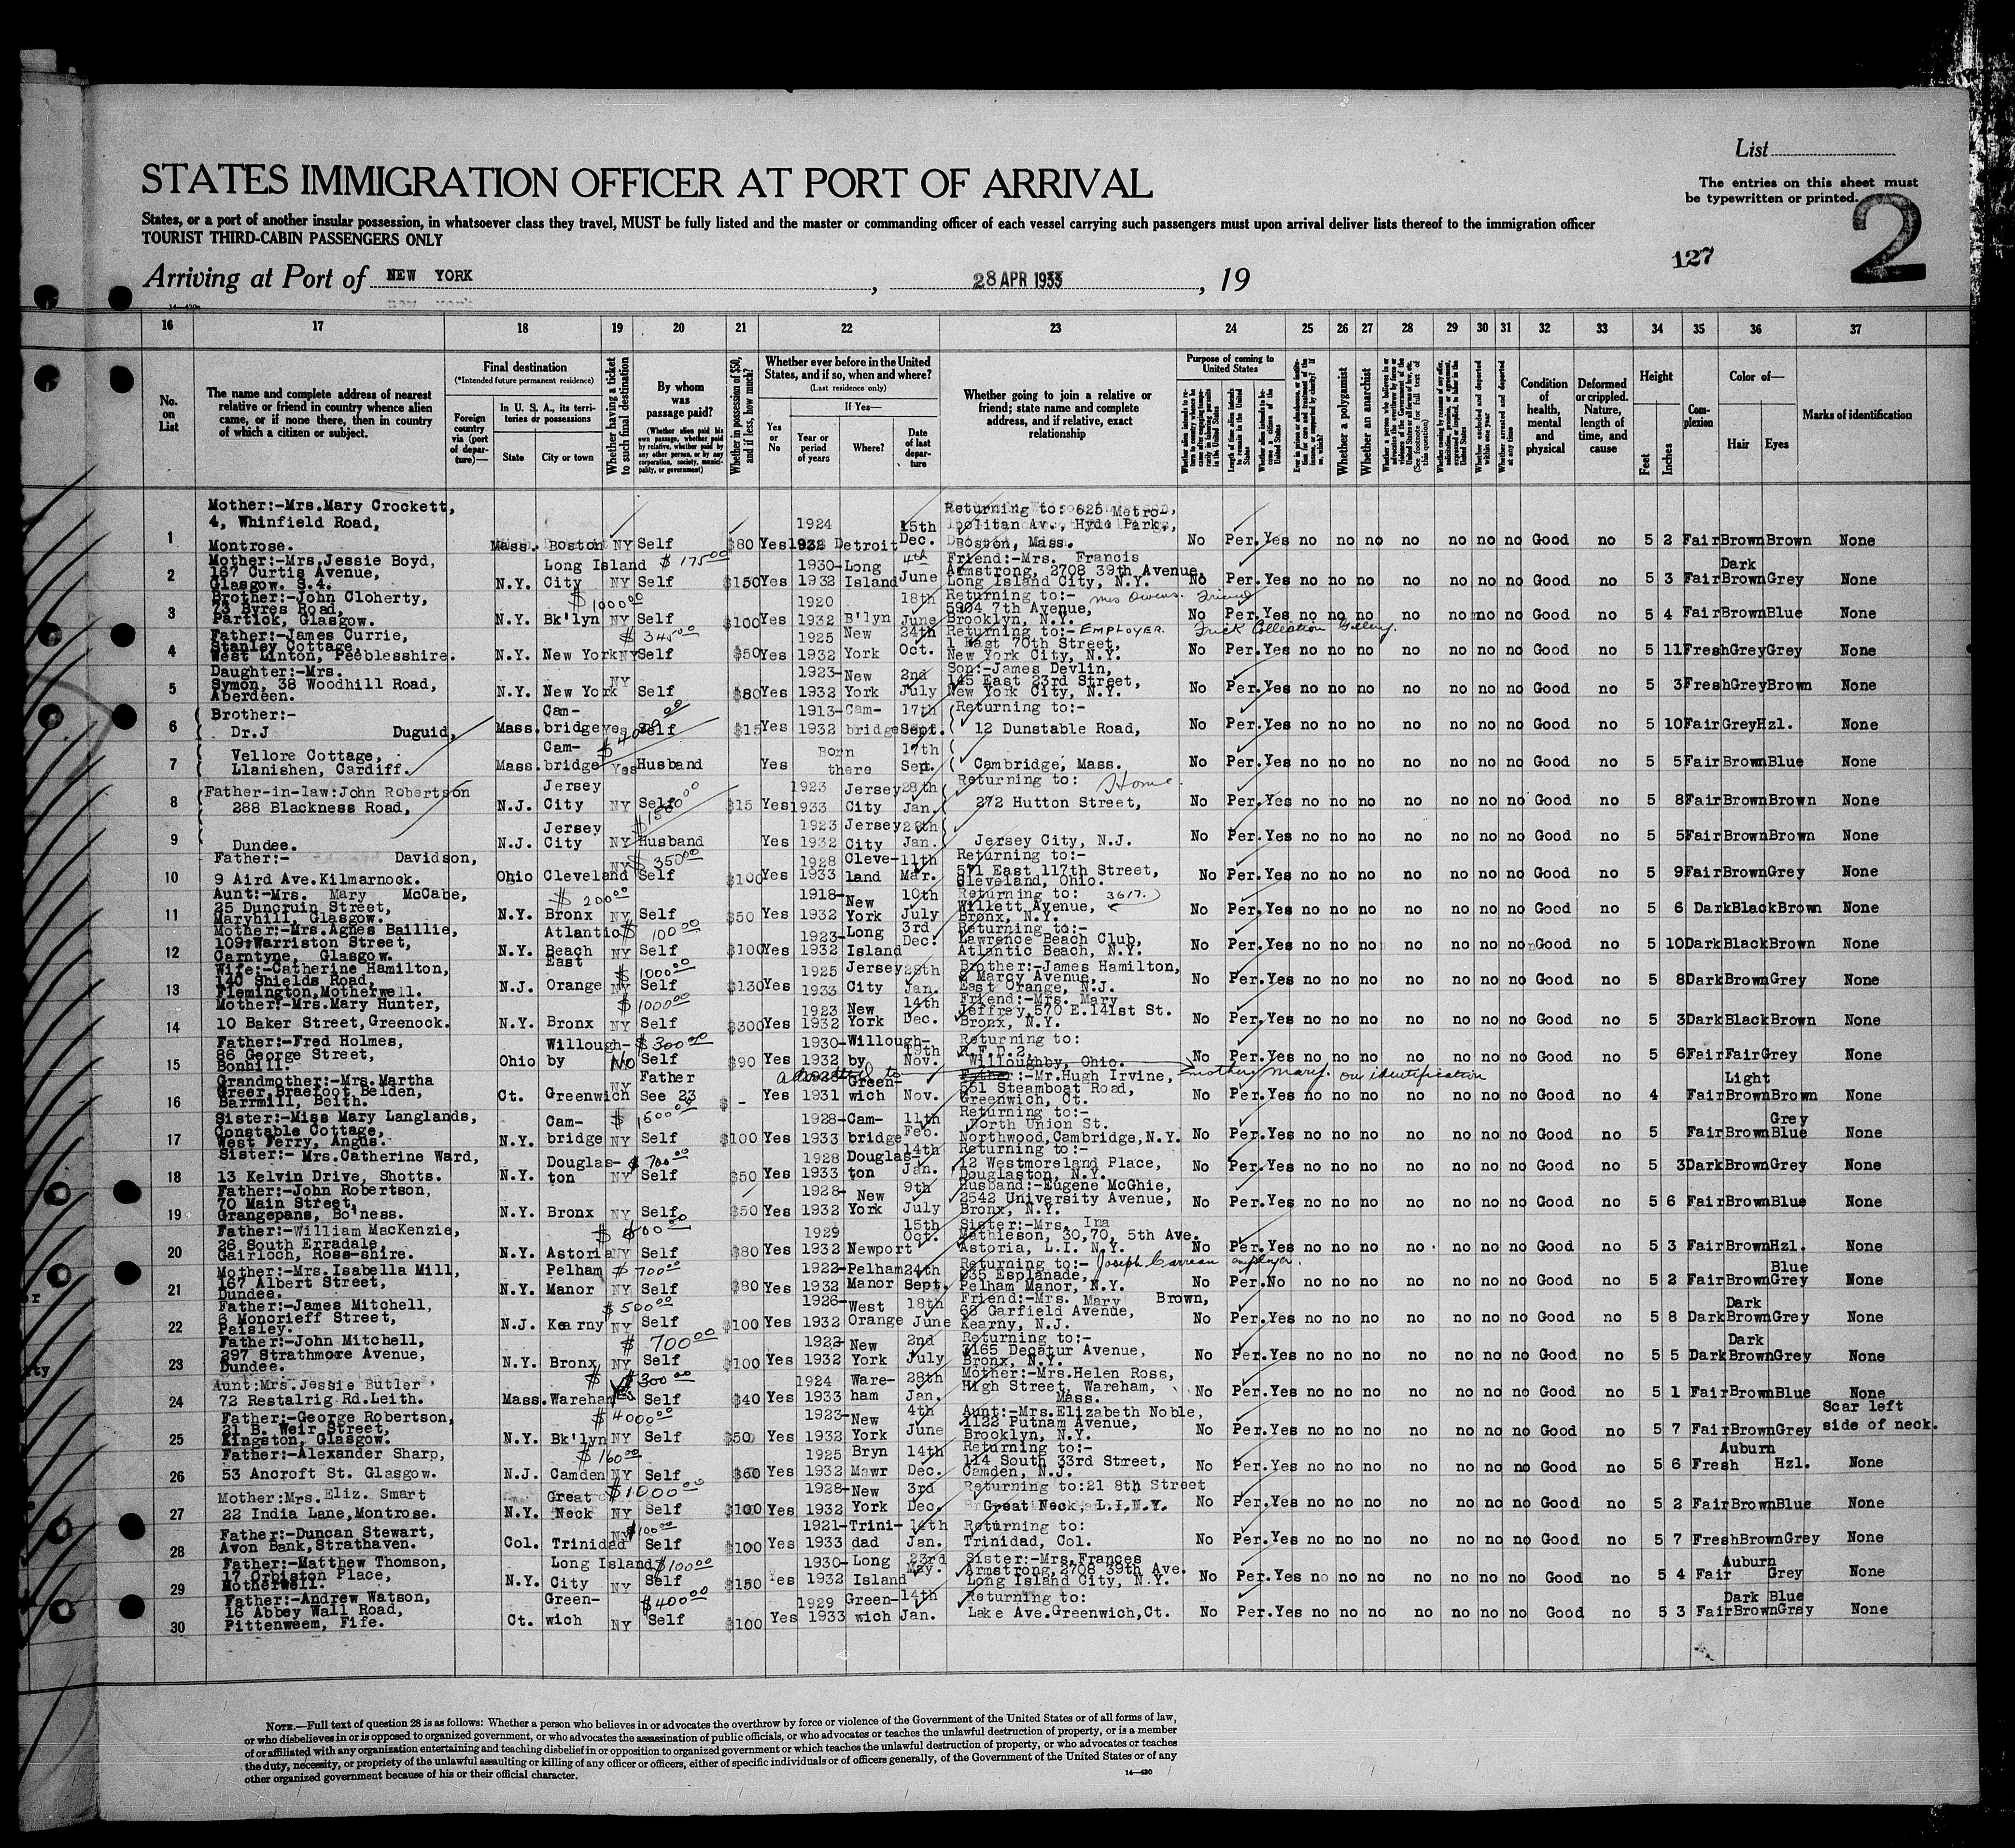 List
STATES IMMIGRATION OFFICER AT PORT OF ARRIVAL
The entries on this sheet must
be typewritten or printed.
2
States, or a port of another insular possession, in whatsoever class they travel, MUST be fully listed and the master or commanding officer of each vessel carrying such passengers must upon arrival deliver lists thereof to the immigration officer
TOURIST THIRD-CABIN PASSENGERS ONLY
127
Arriving at Port of NEW YORK, 28 APR 1933, 19
16 17 18 19 20 21 22 23 24 25 26 27 28 29 30 31 32 33 34 35 36 37
No. on List
The name and complete address of nearest relative or friend in country whence alien came, or if none there, then in country of which a citizen or subject.
Final destination
(*Intended future permanent residence)
Foreign country via (port of departure)—
In U. S. A., its territories or possessions
State
City or town
Whether having a ticket to such final destination
By whom was passage paid?
(Whether alien paid his own passage, whether paid by relative, whether paid by any other person, or by any corporation, society, municipality, or government)
Whether in possession of $50, and if less, how much?
Whether ever before in the United States, and if so, when and where?
(Last residence only)
Yes or No
If Yes—
Year or period of years
Where?
Date of last departure
Whether going to join a relative or friend; state name and complete address, and if relative, exact relationship
Purpose of coming to United States
Whether a polygamist
Whether an anarchist
Condition of health, mental and physical
Deformed or crippled. Nature, length of time, and cause
Height
Feet
Inches
Complexion
Color of—
Hair
Eyes
Marks of identification
1 Mother:-Mrs.Mary Crockett, 4, Whinfield Road, Montrose. Mass. Boston NY Self $80 Yes 1924 1932 Detroit 15th Dec. Returning to: 625 Metropolitan Av., Hyde Park, Boston, Mass. No Per. Yes no no no no no no no Good no 5 2 Fair Brown Brown None
2 Mother:-Mrs.Jessie Boyd, 167 Curtis Avenue, Glasgow. S.4. N.Y. Long Island City NY Self $175.00 $150 Yes 1930-1932 Long Island 4th June Friend:-Mrs. Francis Armstrong, 2708 39th Avenue, Long Island City, N.Y. No Per. Yes no no no no no no no Good no 5 3 Fair Dark Brown Grey None
3 Brother:-John Cloherty, 73 Byres Road, Partick, Glasgow. N.Y. Bk'lyn NY Self $1000.00 $100 Yes 1920 1932 B'lyn 18th June Returning to:- Mrs Owens. Friend 5904 7th Avenue, Brooklyn, N.Y. No Per. Yes no no no no no no no Good no 5 4 Fair Brown Blue None
4 Father:-James Currie, Stanley Cottage, West Linton, Peeblesshire. N.Y. New York NY Self $345.00 $50 Yes 1925 1932 New York 24th Oct. Returning to:- EMPLOYER. Frick Collection Gallery. 1 East 70th Street, New York City, N.Y. No Per. Yes no no no no no no no Good no 5 11 Fresh Grey Grey None
5 Daughter:-Mrs. Symon, 38 Woodhill Road, Aberdeen. N.Y. New York NY Self $80 Yes 1923-1932 New York 2nd July Son:-James Devlin, 145 East 23rd Street, New York City, N.Y. No Per. Yes no no no no no no no Good no 5 3 Fresh Grey Brown None
6 Brother:- Dr.J Duguid, Mass. Cambridge Yes Self $15 Yes 1913-1932 Cambridge 17th Sept. Returning to:- 12 Dunstable Road, No Per. Yes no no no no no no no Good no 5 10 Fair Grey Hzl. None
7 Vellore Cottage, Llanishen, Cardiff. Mass. Cambridge Yes Husband Yes Born there 17th Sept. Cambridge, Mass. No Per. Yes no no no no no no no Good no 5 5 Fair Brown Blue None
8 Father-in-law:John Robertson 288 Blackness Road, N.J. Jersey City NY Self $15 Yes 1923 1933 Jersey City 28th Jan. Returning to: Home. 272 Hutton Street, No Per. Yes no no no no no no no Good no 5 8 Fair Brown Brown None
9 Dundee. N.J. Jersey City NY Husband Yes 1923 1932 Jersey City Jan. Jersey City, N.J. No Per. Yes no no no no no no no Good no 5 5 Fair Brown Brown None
10 Father:- Davidson, 9 Aird Ave.Kilmarnock. Ohio Cleveland NY Self $350.00 $100 Yes 1928 1933 Cleveland 11th Mar. Returning to:- 571 East 117th Street, Cleveland, Ohio. No Per. Yes no no no no no no no Good no 5 9 Fair Brown Grey None
11 Aunt:-Mrs. Mary McCabe, 25 Duncruin Street, Maryhill, Glasgow. N.Y. Bronx NY Self $200.00 $50 Yes 1918-1932 New York 10th July Returning to: 3617. Willett Avenue, Bronx, N.Y. No Per. Yes no no no no no no no Good no 5 6 Dark Black Brown None
12 Mother:-Mrs.Agnes Baillie, 109 Warriston Street, Carntyne, Glasgow. N.Y. Atlantic Beach NY Self $100.00 $100 Yes 1923-1932 Long Island 3rd Dec. Returning to:- Lawrence Beach Club, Atlantic Beach, N.Y. No Per. Yes no no no no no no no Good no 5 10 Dark Black Brown None
13 Wife:-Catherine Hamilton, 140 Shields Road, Flemington,Motherwell. N.J. East Orange NY Self $1000.00 $130 Yes 1925 1933 Jersey City 28th Jan. Brother:-James Hamilton, Marcy Avenue, East Orange, N.J. No Per. Yes no no no no no no no Good no 5 8 Dark Brown Grey None
14 Mother:-Mrs.Mary Hunter, 10 Baker Street,Greenock. N.Y. Bronx NY Self $1000.00 $300 Yes 1923 1932 New York 14th Dec. Friend:-Mrs. Mary Jeffrey,570 E.141st St. Bronx, N.Y. No Per. Yes no no no no no no no Good no 5 3 Dark Black Brown None
15 Father:-Fred Holmes, 86 George Street, Bonhill. Ohio Willoughby No Self $300.00 $90 Yes 1930-1932 Willoughby 19th Nov. Returning to: R.F.D.2, Willoughby, Ohio. No Per. Yes no no no no no no no Good no 5 6 Fair Fair Grey None
16 Grandmother:-Mrs.Martha Greer,Braefoot Belden, Barrmill, Beith. Ct. Greenwich NY Father See 23 $ - Yes 1928-1931 Greenwich Nov. admitted to Father:-Mr.Hugh Irvine, mother Mary. on identification 551 Steamboat Road, Greenwich, Ct. No Per. Yes no no no no no no no Good no 4 Fair Light Brown Brown None
17 Sister:-Miss Mary Langlands, Constable Cottage, West Ferry, Angus. N.Y. Cambridge NY Self $100 Yes 1928-1933 Cambridge 11th Feb. Returning to:- North Union St. Northwood,Cambridge,N.Y. No Per. Yes no no no no no no no Good no 5 Fair Brown Grey Blue None
18 Sister:- Mrs.Catherine Ward, 13 Kelvin Drive, Shotts. N.Y. Douglaston NY Self $700.00 $50 Yes 1928 1933 Douglaston 14th Jan. Returning to:- 12 Westmoreland Place, Douglaston, N.Y. No Per. Yes no no no no no no no Good no 5 3 Dark Brown Grey None
19 Father:-John Robertson, 70 Main Street, Grangepans, Bo'ness. N.Y. Bronx NY Self $50 Yes 1928-1932 New York 9th July Husband:-Eugene McGhie, 2542 University Avenue, Bronx, N.Y. No Per. Yes no no no no no no no Good no 5 6 Fair Brown Blue None
20 Father:-William MacKenzie, 26 South Erradale, Gairloch, Ross-shire. N.Y. Astoria NY Self $80 Yes 1929 1932 Newport 15th Oct. Sister:-Mrs. Ina Mathieson, 30,70, 5th Ave. Astoria, L.I. N.Y. No Per. Yes no no no no no no no Good no 5 3 Fair Brown Hzl. None
21 Mother:-Mrs.Isabella Mill, 167 Albert Street, Dundee. N.Y. Pelham Manor NY Self $700.00 $80 Yes 1922-1932 Pelham Manor 24th Sept. Returning to:- Joseph employer. 935 Esplanade, Pelham Manor, N.Y. No Per. No no no no no no no no Good no 5 2 Fair Brown Blue Grey None
22 Father:-James Mitchell, 6 Moncrieff Street, Paisley. N.J. Kearny NY Self $500.00 $100 Yes 1926-1932 West Orange 18th June Friend:-Mrs. Mary Brown, 68 Garfield Avenue, Kearny, N.J. No Per. Yes no no no no no no no Good no 5 8 Dark Dark Brown Grey None
23 Father:-John Mitchell, 297 Strathmore Avenue, Dundee. N.Y. Bronx NY Self $700.00 $100 Yes 1922-1932 New York 2nd July Returning to:- 3165 Decatur Avenue, Bronx, N.Y. No Per. Yes no no no no no no no Good no 5 5 Dark Dark Brown Grey None
24 Aunt:Mrs.Jessie Butler 72 Restalrig Rd.Leith. Mass. Wareham Yes Self $300.00 $40 Yes 1924 1933 Wareham 28th Jan. Mother:-Mrs.Helen Ross, High Street, Wareham, Mass. No Per. Yes no no no no no no no Good no 5 1 Fair Brown Blue None
25 Father:-George Robertson, 21 B. Weir Street, Kingston, Glasgow. N.Y. Bk'lyn NY Self $4000.00 $50 Yes 1923-1932 New York 4th June Aunt:-Mrs.Elizabeth Noble, 1122 Putnam Avenue, Brooklyn, N.Y. No Per. Yes no no no no no no no Good no 5 7 Fair Brown Grey Scar left side of neck.
26 Father:-Alexander Sharp, 53 Ancroft St. Glasgow. N.J. Camden NY Self $160.00 $60 Yes 1925 1932 Bryn Mawr 14th Dec. Returning to:- 114 South 33rd Street, Camden, N.J. No Per. Yes no no no no no no no Good no 5 6 Fresh Auburn Hzl. None
27 Mother:Mrs.Eliz. Smart 22 India Lane,Montrose. N.Y. Great Neck NY Self $1000.00 $100 Yes 1928-1932 New York 3rd Dec. Returning to:21 8th Street Great Neck, L.I.N.Y. No Per. Yes no no no no no no no Good no 5 2 Fair Brown Blue None
28 Father:-Duncan Stewart, Avon Bank,Strathaven. Col. Trinidad NY Self $100.00 $100 Yes 1921-1933 Trinidad 14th Jan. Returning to: Trinidad, Col. No Per. Yes no no no no no no no Good no 5 7 Fresh Brown Grey None
29 Father:-Matthew Thomson, 17 Orbiston Place, Motherwell. N.Y. Long Island City NY Self $100.00 $150 Yes 1930-1932 Long Island 23rd May. Sister:-Mrs.Frances Armstrong,2708 39th Ave. Long Island City, N.Y. No Per. Yes no no no no no no no Good no 5 4 Fair Auburn Grey None
30 Father:-Andrew Watson, 16 Abbey Wall Road, Pittenweem, Fife. Ct. Greenwich NY Self $400.00 $100 Yes 1929 1933 Greenwich 14th Jan. Returning to: Lake Ave.Greenwich,Ct. No Per. Yes no no no no no no no Good no 5 3 Fair Dark Brown Blue Grey None
NOTE.—Full text of question 28 is as follows: Whether a person who believes in or advocates the overthrow by force or violence of the Government of the United States or of all forms of law,
or who disbelieves in or is opposed to organized government, or who advocates the assassination of public officials, or who advocates or teaches the unlawful destruction of property, or is a member
of or affiliated with any organization entertaining and teaching disbelief in or opposition to organized government or which teaches the unlawful destruction of property, or who advocates or teaches
the duty, necessity, or propriety of the unlawful assaulting or killing of any officer or officers, either of specific individuals or of officers generally, of the Government of the United States or of any
other organized government because of his or their official character.
14—430